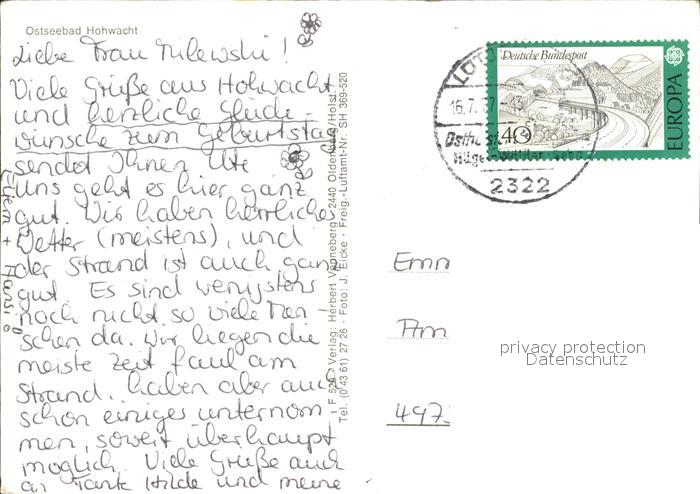 Ostseebad Hohwacht
Liebe Frau Milewski!
Viele Grüße aus Hohwacht
und herzliche Glück-
wünsche zum Geburtstag
sendet Ihnen Ute
Uns geht es hier ganz
gut. Wir haben herrliches
Wetter (meistens), und
der Strand ist auch ganz
gut. Es sind wenigstens
noch nicht so viele Men-
schen da. Wir liegen die
meiste Zeit faul am
Strand, haben aber auch
schon einiges unternom-
men, soweit überhaupt
möglich. Viele Grüße auch
an Tante Hilde und meine
Eltern + Hansi
F 529 Verlag: Herbert Venneberg · 2440 Oldenburg/Holst.
Tel. (0 43 61) 27 26 · Foto: J. Eicke · Freig.-Luftamt-Nr. SH 369-520
Deutsche Bundespost
40
EUROPA
16.7.
2322
Emm
Am
497
privacy protection
Datenschutz